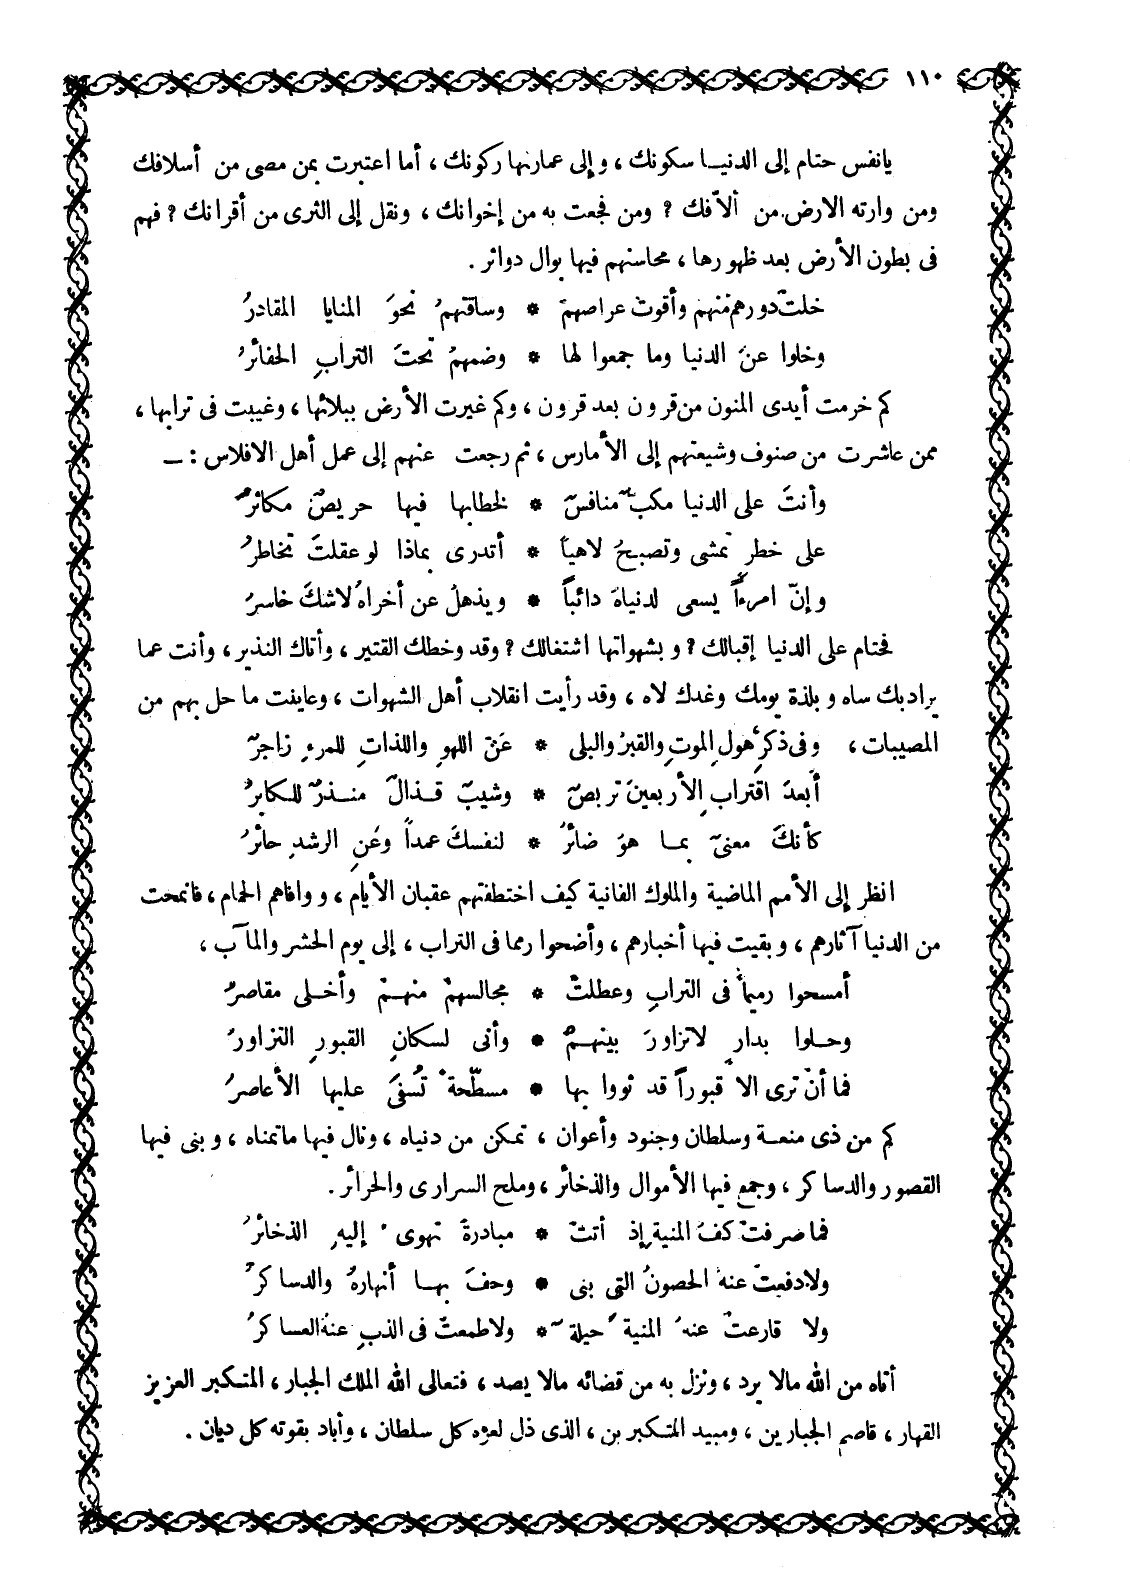 ١١٠
يانفس حتام إلى الدنيا سكونك ، و إلى عمارتها ركونك ، أما اعتبرت بمن مصى من أسلافك
ومن وارته الارض من ألاّفك ? ومن فجعت به من إخوانك ، ونقل إلى الثرى من أقرانك ? فهم
فى بطون الأرض بعد ظهورها ، محاسنهم فيها بوال دواثر .
خلتْ دورهم منهم وأقوتْ عراصهمْ * وساقتهمُ نحوَ المنايا المقادرُ
وخلوا عنَ الدنيا وما جمعوا لها * وضمهمُ تحتَ الترابِ الحفائرُ
كم خرمت أيدى المنون من قرون بعد قرون ، وكم غيرت الأرض ببلائها ، وغيبت فى ترابها ،
ممن عاشرت من صنوف وشيعتهم إلى الأمارس ، ثم رجعت عنهم إلى عمل أهل الافلاس : ــ
وأنتَ على الدنيا مكبٌ منافسٌ * لخطابها فيها حريصٌ مكاثرٌ
على خطرٍ تمشى وتصبحُ لاهياً * أتدرى بماذا لو عقلتَ تخاطرُ
و إنّ امرءاً يسعى لدنياهَ دائباً * ويذهلُ عن أخراهُ لاشكَ خاسرُ
فحتام على الدنيا إقبالك ? و بشهواتها اشتغالك ? وقد وخطك القتير ، وأتاك النذير ، وأنت عما
يراد بك ساه و بلذة يومك وغدك لاه ، وقد رأيت انقلاب أهل الشهوات ، وعاينت ما حل بهم من
المصيبات ، وفى ذكرِ هولِ الموتِ والقبرُ والبلى * عَنْ اللهوِ واللذاتِ للمرءِ زاجرٌ
أبعدَ اقترابِ الأربعينَ تربصٌ * وشيبٌ قذالٌ منذرٌ للكابرُ
كأنكَ معنىٌ بما هوَ ضائرُ * لنفسكَ عمداً وعَنِ الرشدِ حائرُ
انظر إلى الأمم الماضية والملوك الفانية كيف اختطفتهم عقبان الأيام ، و وافاهم الحمام ، فانمحت
من الدنيا آثارهم ، و بقيت فيها أخبارهم ، وأضحوا رمما فى التراب ، إلى يوم الحشر والمآب ،
أمسحوا رميماً فى الترابِ وعطلتْ * مجالسهمْ منهمْ وأخلى مقاصرُ
وحلوا بدارٍ لاتزاورَ بينهمُ * وأنى لسكانِ القبورِ التزاورُ
فما أنْ ترى الا قبوراً قد ثووا بها * مسطّحةً تُسفىَ عليها الأعاصرُ
كم من ذى منعة وسلطان وجنود وأعوان ، تمكن من دنياه ، ونال فيها ماتمناه ، و بنى فيها
القصور والدساكر ، وجمع فيها الأموال والذخائر ، وملح السرارى والحرائر .
فما صرفتْ كفُ المنيةِ إذ أتتْ * مبادرةً تهوى إليهِ الذخائرُ
ولادفعتْ عنهُ الحصونُ التى بنى * وحفَ بها أنهارهُ والدساكرُ
ولا قارعتْ عنهُ المنيةَ حيلةٌ * ولاطمعتْ فى الذبِ عنهُ العساكرُ
أتاه من الله مالا يرد ، ونزل به من قضائه مالا يصد ، فتعالى الله الملك الجبار ، المتكبر العزيز
القهار ، قاصم الجبارين ، ومبيد المتكبرين ، الذى ذل لعزه كل سلطان ، وأباد بقوته كل ديان .